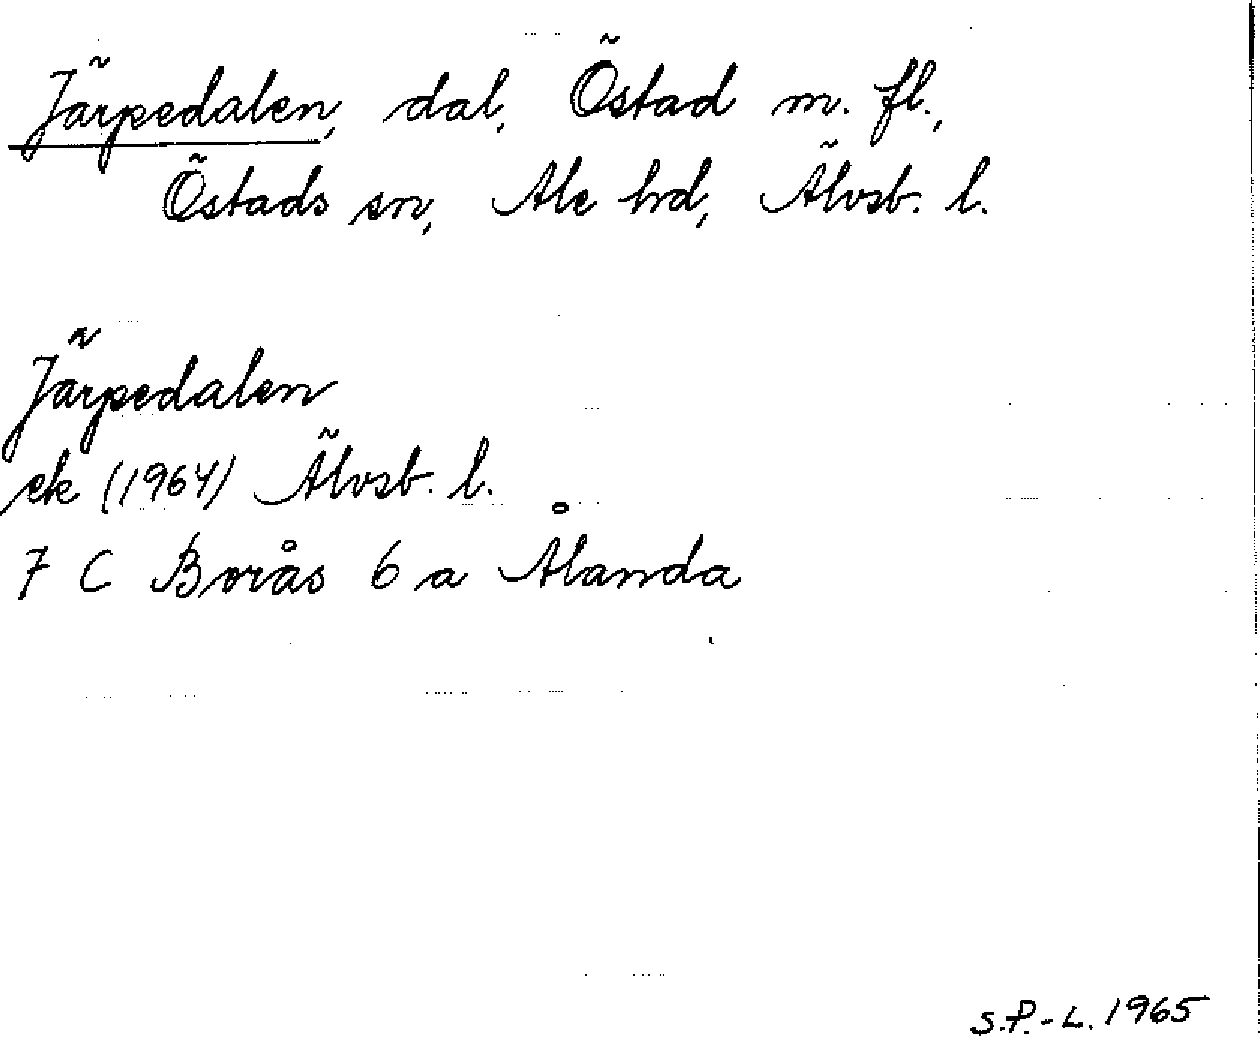 Järpedalen, dal, Östad m. fl.,
Östads sn, Ale hd, Älvsb. l.
Järpedalen
ek (1964) Älvsb. l.
7 C Borås 6 a Ålanda
S.P.-L. 1965